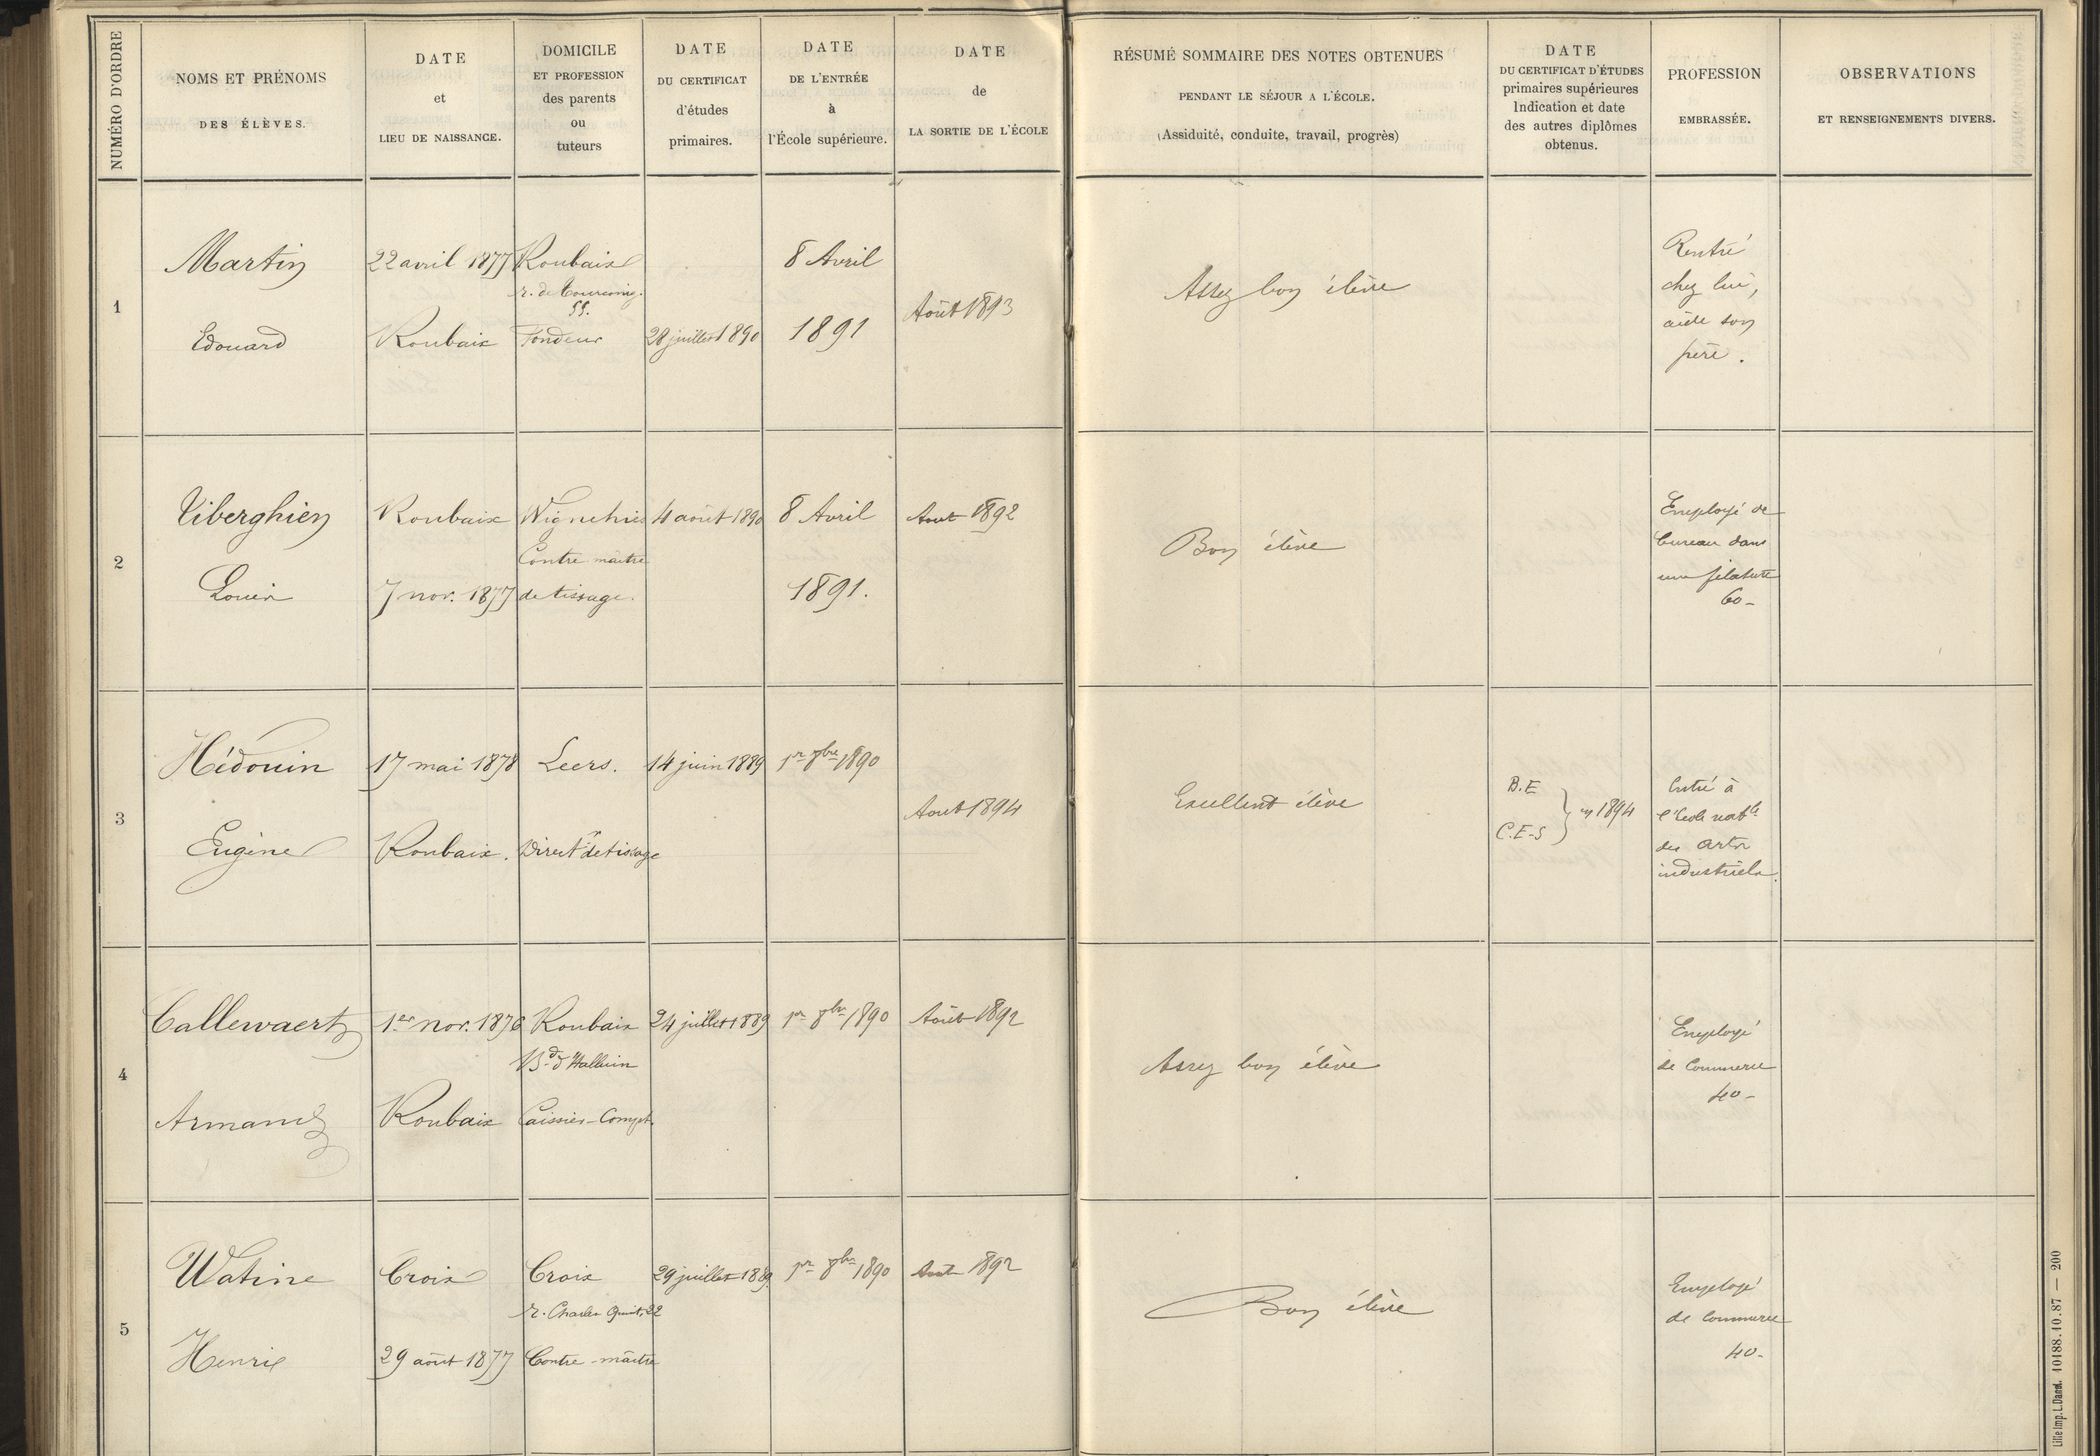 NUMÉRO D'ORDRE
NOMS ET PRÉNOMS
DES ÉLÈVES.
DATE
et
LIEU DE NAISSANCE.
DOMICILE
ET PROFESSION
des parents
ou
tuteurs
DATE
DU CERTIFICAT
d'études
primaires.
DATE
DE L'ENTRÉE
à
l'École supérieure.
DATE
de
LA SORTIE DE L'ÉCOLE
RÉSUMÉ SOMMAIRE DES NOTES OBTENUES
PENDANT LE SÉJOUR A L'ÉCOLE.
(Assiduité, conduite, travail, progrès)
DATE
DU CERTIFICAT D'ÉTUDES
primaires supérieures
Indication et date
des autres diplômes
obtenus.
PROFESSION
EMBRASSÉE.
OBSERVATIONS
ET RENSEIGNEMENTS DIVERS.
1
Martin
Edouard
22 avril 1877
Roubaix
Roubaix
r. de Tourcoing.
55.
Fondeur
28 juillet 1890
8 Avril
1891
Août 1893
Assez bon élève
Rentré
chez lui,
aide son
père.
2
Tiberghien
Louis
Roubaix
7 nov. 1877
Wignehies
Contre maître
de tissage.
4 août 1890
8 Avril
1891.
Aout 1892
Bon élève
Employé de
bureau dans
une filature
60-
3
Hédouin
Eugène
17 mai 1878
Roubaix.
Leers.
Direct.r de tissage
14 juin 1889
1er 8bre 1890
Aout 1894
Excellent élève
B.E
C.E-S
en 1894
Entré à
l'Ecole natle
des arts
industriels.
4
Callewaert
Armand
1er nov. 1876
Roubaix
Roubaix
Bd d'Halluin
Caissier-Compt.
24 juillet 1889
1er 8bre 1890
Août 1892
Assez bon élève
Employé
de Commerce
40-
5
Watine
Henri
Croix
29 août 1877
Croix
r. Charles Quint, 22
Contre-maître
29 juillet 1889
1er 8bre 1890
Août 1892
Bon élève
Employé
de Commerce
40-
Lille Imp. L. Danel. 10188.10.87 — 200